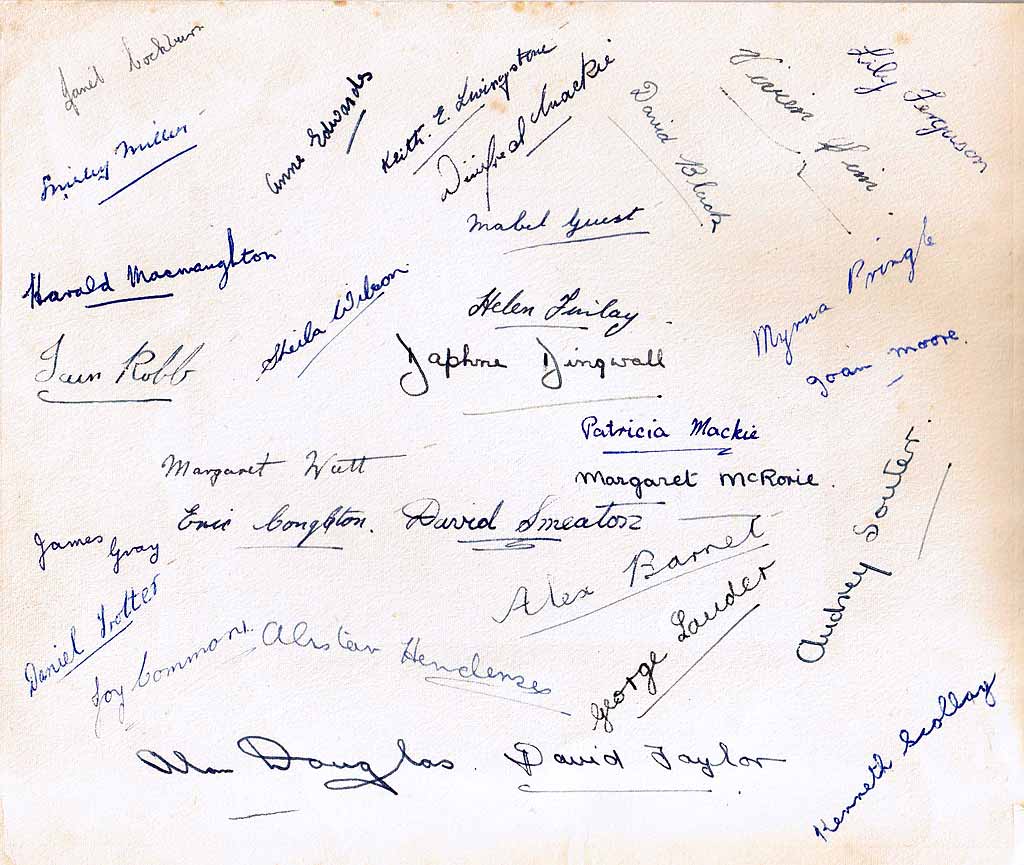 Janet Cockburn
Shirley Miller
Anne Edwardes
Keith. E. Livingstone
Winifred Mackie
David Black
Vivien Sim
Lily Ferguson
Mabel Guest
Harald Macnaughton
Sheila Wilson
Helen Finlay
Myrna Pringle
Joan Moore.
Iain Robb
Daphne Dingwall
Patricia Mackie
Margaret Watt
Margaret McRorie.
Eric Coughton.
David Smeaton
Audrey Souter.
James Gray
Alex Barnet
Daniel Trotter
Joy Common.
Alistair Henderson
George Lauder
Alan Douglas.
David Taylor
Kenneth Scollay